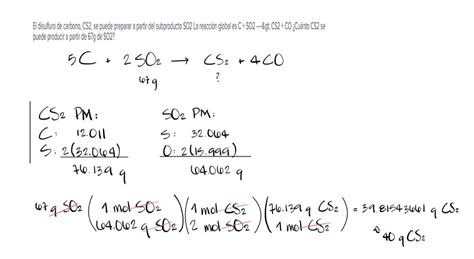 El disulfuro de carbono, CS2, se puede preparar a partir del subproducto SO2 La reacción global es C + SO2 —&gt; CS2 + CO ¿Cuánto CS2 se
puede producir a partir de 67g de SO2?
5C + 2SO₂ → CS₂ + 4CO
67g ?
CS₂ PM: SO₂ PM:
C: 12.011 S: 32.064
S: 2(32.064) O: 2(15.999)
76.139 g 64.062 g
67 g SO₂ (1 mol SO₂ / 64.062 g SO₂)(1 mol CS₂ / 2 mol SO₂)(76.139 g CS₂ / 1 mol CS₂) = 39.81543661 g CS₂
≈ 40 g CS₂